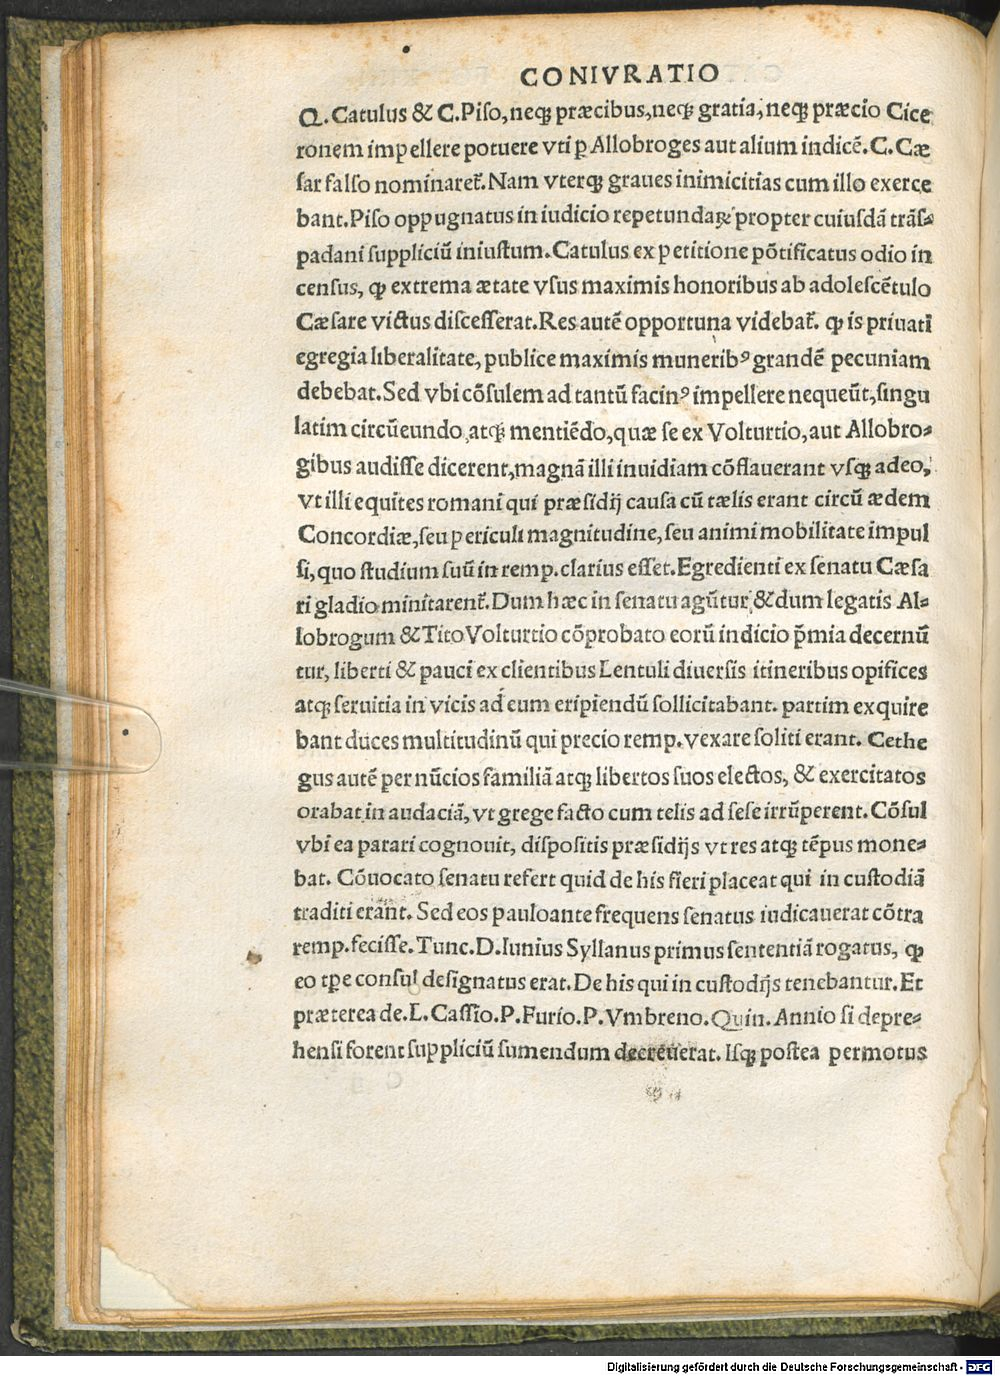 CONIVRATIO
Q. Catulus & C. Piſo, neqꝫ præcibus, neqꝫ gratia, neqꝫ præcio Cice
ronem impellere potuere vti ꝑ Allobroges aut alium indicē. C. Cæ
ſar falſo nominaret᷑. Nam vterqꝫ graues inimicitias cum illo exerce
bant. Piſo oppugnatus in iudicio repetundaꝝ propter cuiuſdā trāſ⸗
padani ſuppliciū iniuſtum. Catulus ex petitione pōtificatus odio in
cenſus, ꝙ extrema ætate vſus maximis honoribus ab adoleſcētulo
Cæſare victus diſceſſerat. Res autē opportuna videbat᷑. ꝙ is priuati
egregia liberalitate, publice maximis muneribꝰ grandē pecuniam
debebat. Sed vbi cōſulem ad tantū facinꝰ impellere nequeūt, ſingu
latim circūeundo atqꝫ mentiēdo, quæ ſe ex Volturtio, aut Allobro⸗
gibus audiſſe dicerent, magnā illi inuidiam cōflauerant vſqꝫ adeo,
vt illi equites romani qui præſidij cauſa cū tælis erant circū ædem
Concordiæ, ſeu periculi magnitudine, ſeu animi mobilitate impul
ſi, quo ſtudium ſuū in remp. clarius eſſet. Egredienti ex ſenatu Cæſa
ri gladio minitarent᷑. Dum hæc in ſenatu agūtur, & dum legatis Al⸗
lobrogum & Tito Volturtio cōprobato eorū indicio p̄mia decernū
tur, liberti & pauci ex clientibus Lentuli diuerſis itineribus opifices
atqꝫ ſeruitia in vicis ad eum eripiendū ſollicitabant. partim exquire
bant duces multitudinū qui precio remp. vexare ſoliti erant. Cethe
gus autē per nūcios familiā atqꝫ libertos ſuos electos, & exercitatos
orabat in audaciā, vt grege facto cum telis ad ſeſe irrūperent. Cōſul
vbi ea parari cognouit, diſpoſitis præſidijs vt res atqꝫ tēpus mone⸗
bat. Cōuocato ſenatu refert quid de his fieri placeat qui in cuſtodiā
traditi erant. Sed eos pauloante frequens ſenatus iudicauerat cōtra
remp. feciſſe. Tunc. D. Iunius Syllanus primus ſententiā rogatus, ꝙ
eo tꝑe conſul deſignatus erat. De his qui in cuſtodijs tenebantur. Et
præterea de. L. Caſſio. P. Furio. P. Vmbreno. Quin. Annio ſi depre⸗
henſi forent ſuppliciū ſumendum decreuerat. Iſqꝫ poſtea permotus
Digitalisierung gefördert durch die Deutsche Forschungsgemeinschaft - DFG